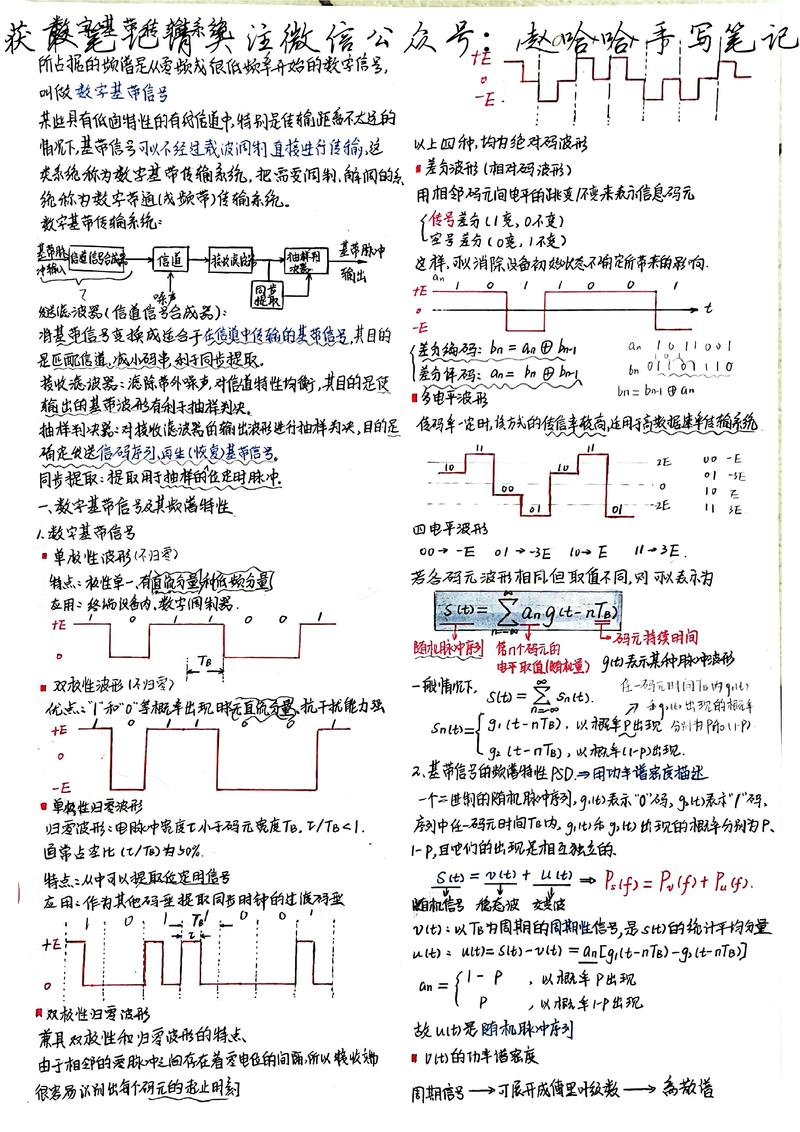 数字基带传输系统
获取笔记请关注微信公众号：赵哈哈手写笔记
所占据的频谱是从零频或很低频率开始的数字信号,
叫做数字基带信号
某些具有低通特性的有线信道中,特别是传输距离不太远的
情况下,基带信号可以不经过载波调制直接进行传输,这
类系统称为数字基带传输系统。把需要调制、解调的系
统称为数字带通(或频带)传输系统。
数字基带传输系统:
基带脉冲输入 信道信号合成器 信道 接收滤波器 抽样判决器 基带脉冲输出
噪声 同步提取
发送滤波器(信道信号合成器):
将基带信号变换成适合于在信道中传输的基带信号,其目的
是匹配信道,减小码串,利于同步提取。
接收滤波器:滤除带外噪声,对信道特性均衡,其目的是使
输出的基带波形有利于抽样判决。
抽样判决器:对接收滤波器的输出波形进行抽样判决,目的是
确定发送信码序列,再生(恢复)基带信号。
同步提取:提取用于抽样的位定时脉冲.
一、数字基带信号及其频谱特性
1.数字基带信号
单极性波形(不归零)
特点:极性单一,有直流分量和低频分量
应用:终端设备内,数字调制器.
+E 1 0 1 1 0 0 1
0
TB
双极性波形(不归零)
优点:"1"和"0"等概率出现时无直流分量,抗干扰能力强
+E 1 0 1 1 0 0 1
0
-E
单极性归零波形
归零波形:电脉冲宽度τ小于码元宽度TB, τ/TB<1.
通常占空比(τ/TB)为50%.
特点:从中可以提取位定时信号
应用:作为其他码型提取同步时钟的过渡码型
1 0 1 1 0 0 1
TB
τ
+E
0
双极性归零波形
兼具双极性和归零波形的特点、
由于相邻的零脉冲之间存在着零电位的间隔,所以接收端
很容易识别出每个码元的起止时刻
+E
0
-E.
以上四种,均为绝对码波形
差分波形(相对码波形)
用相邻码元间电平的跳变/不变来表示信息码元
传号差分(1变,0不变)
空号差分(0变,1不变)
这样,可以消除设备初始状态不确定所带来的影响.
an 1 0 1 1 0 0 1
+E
0 t
-E
差分编码: bn = an ⊕ bn-1 an 1 0 1 1 0 0 1
差分译码: an = bn ⊕ bn-1 bn 0 1 1 0 1 1 1 0
bn = bn-1 ⊕ an
多电平波形
传码率一定时,该方式的传信率较高,适用于高数据速率传输系统
10 11 00 01 10 11 01
2E
0
-2E
00 -E
01 -3E
10 E
11 3E
四电平波形
00→-E 01→-3E 10→E 11→3E.
若各码元波形相同但取值不同,则可以表示为
s(t)= ∑ an g(t-nTB)
n=-∞ ∞
随机脉冲序列 第n个码元的电平取值(随机量) 码元持续时间
g(t)表示某种脉冲波形
一般情况下, s(t)= ∑ sn(t). 在一码元时间TB内g1(t)
和g2(t)出现的概率
分别为P和(1-P)
sn(t)= g1(t-nTB), 以概率P出现
g2(t-nTB), 以概率(1-P)出现.
2、基带信号的频谱特性PSD⇒用功率谱密度描述
一个二进制的随机脉冲序列, g1(t)表示"0"码, g2(t)表示"1"码、
序列中任一码元时间TB内, g1(t)和g2(t)出现的概率分别为P、
1-P,且它们的出现是相互独立的.
s(t) = v(t) + u(t) ⇒ Ps(f) = Pv(f) + Pu(f).
随机信号 稳态波 交变波
v(t):以TB为周期的周期性信号,是s(t)的统计平均分量
u(t): u(t)=s(t)-v(t) = an[g1(t-nTB)-g2(t-nTB)]
an = 1-P , 以概率P出现
P , 以概率1-P出现
故u(t)是随机脉冲序列
v(t)的功率谱密度
周期信号→可展开成傅里叶级数→离散谱